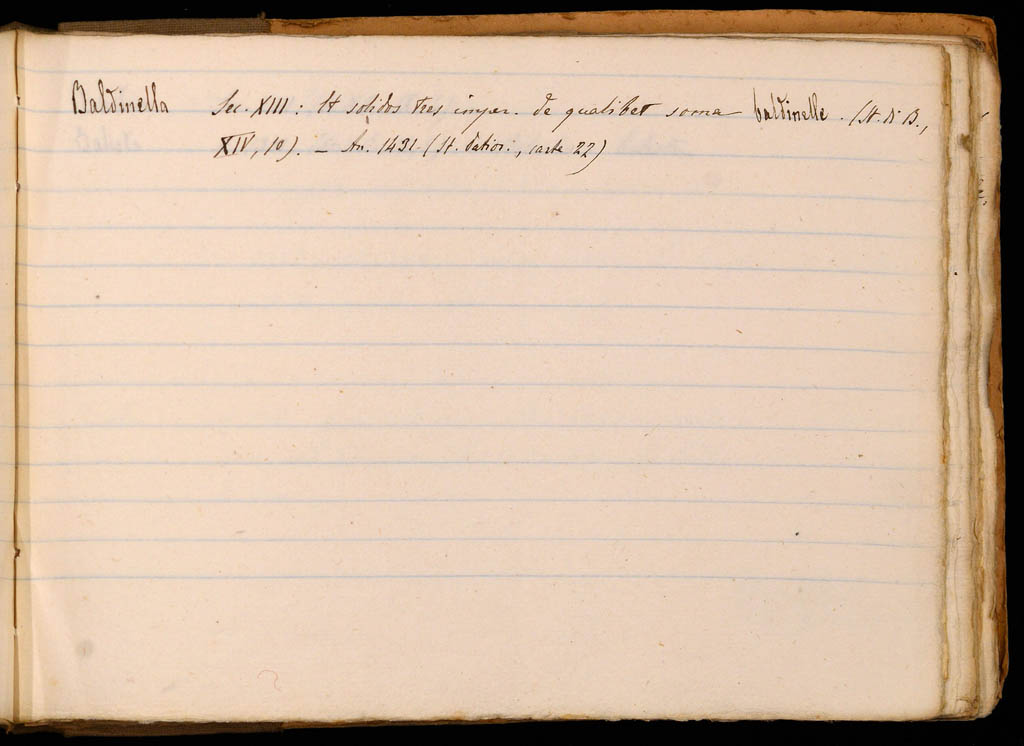 Baldinella Sec. XIII: Et solidos tres imper. de qualibet soma baldinelle. (St. di B.,
XIV, 10). — An. 1431 (St. datior., carte 22)